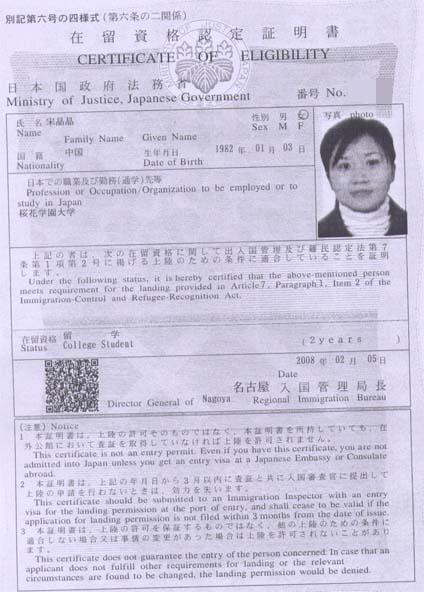 別記第六号の四様式(第六条の二関係)
在留資格認定証明書
CERTIFICATE OF ELIGIBILITY
日本国政府法務省
Ministry of Justice, Japanese Government 番号 No.
氏名 宋晶晶 性別 男 女 写真 photo
Name Sex M F
Family Name Given Name
国籍 中国 生年月日 1982 年 01 月 03 日
Nationality Date of Birth
日本での職業及び勤務(通学)先等
Profession or Occupation/Organization to be employed or to
study in Japan
桜花学園大学
上記の者は、次の在留資格に関して出入国管理及び難民認定法第7
条第1項第2号に掲げる上陸のための条件に適合していることを証明
します。
Under the following status, it is hereby certified that the above-mentioned person
meets requirement for the landing provided in Article7, Paragraph1, Item 2 of the
Immigration-Control and Refugee-Recognition Act.
在留資格 留 学
Status College Student (2years)
2008 年 02 月 05 日
Date
名古屋 入国管理局長
Director General of Nagoya Regional Immigration Bureau
(注意) Notice
1 本証明書は、上陸の許可そのものではなく、本証明書を所持していても、在
外公館において査証を取得していなければ上陸を許可されません。
This certificate is not an entry permit. Even if you have this certificate, you are not
admitted into Japan unless you get an entry visa at a Japanese Embassy or Consulate
abroad.
2 本証明書は、上記の年月日から3月以内に査証と共に入国審査官に提出して
上陸の申請を行わないときは、効力を失います。
This certificate should be submitted to an Immigration Inspector with an entry
visa for the landing permission at the port of entry, and shall cease to be valid if the
application for landing permission is not filed within 3 months from the date of issue.
3 本証明書は、上陸の許可を保証するものではなく、他の上陸のための条件に
適合しない場合又は事情の変更があった場合は上陸を許可されないことがあり
ます。
This certificate does not guarantee the entry of the person concerned. In case that an
applicant does not fulfill other requirements for landing or the relevant
circumstances are found to be changed, the landing permission would be denied.